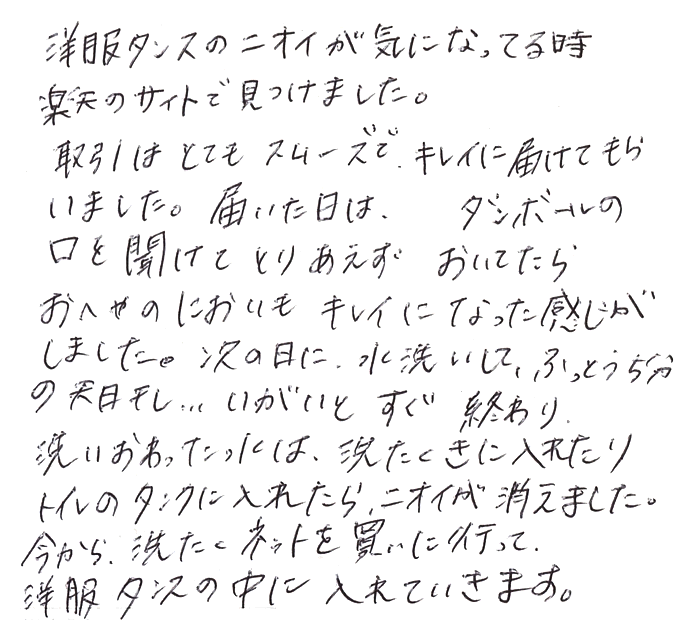 洋服タンスのニオイが気になってる時
楽天のサイトで見つけました。
取引はとてもスムーズで、キレイに届けてもら
いました。届いた日は、ダンボールの
口を開けてとりあえずおいてたら
おへやのにおいもキレイになった感じが
しました。次の日に、水洗いして、ふっとう5分
の天日干し…いがいとすぐ終わり、
洗いおわった水は、洗たくきに入れたり
トイレのタンクに入れたら、ニオイが消えました。
今から、洗たくネットを買いに行って、
洋服タンスの中に入れていきます。